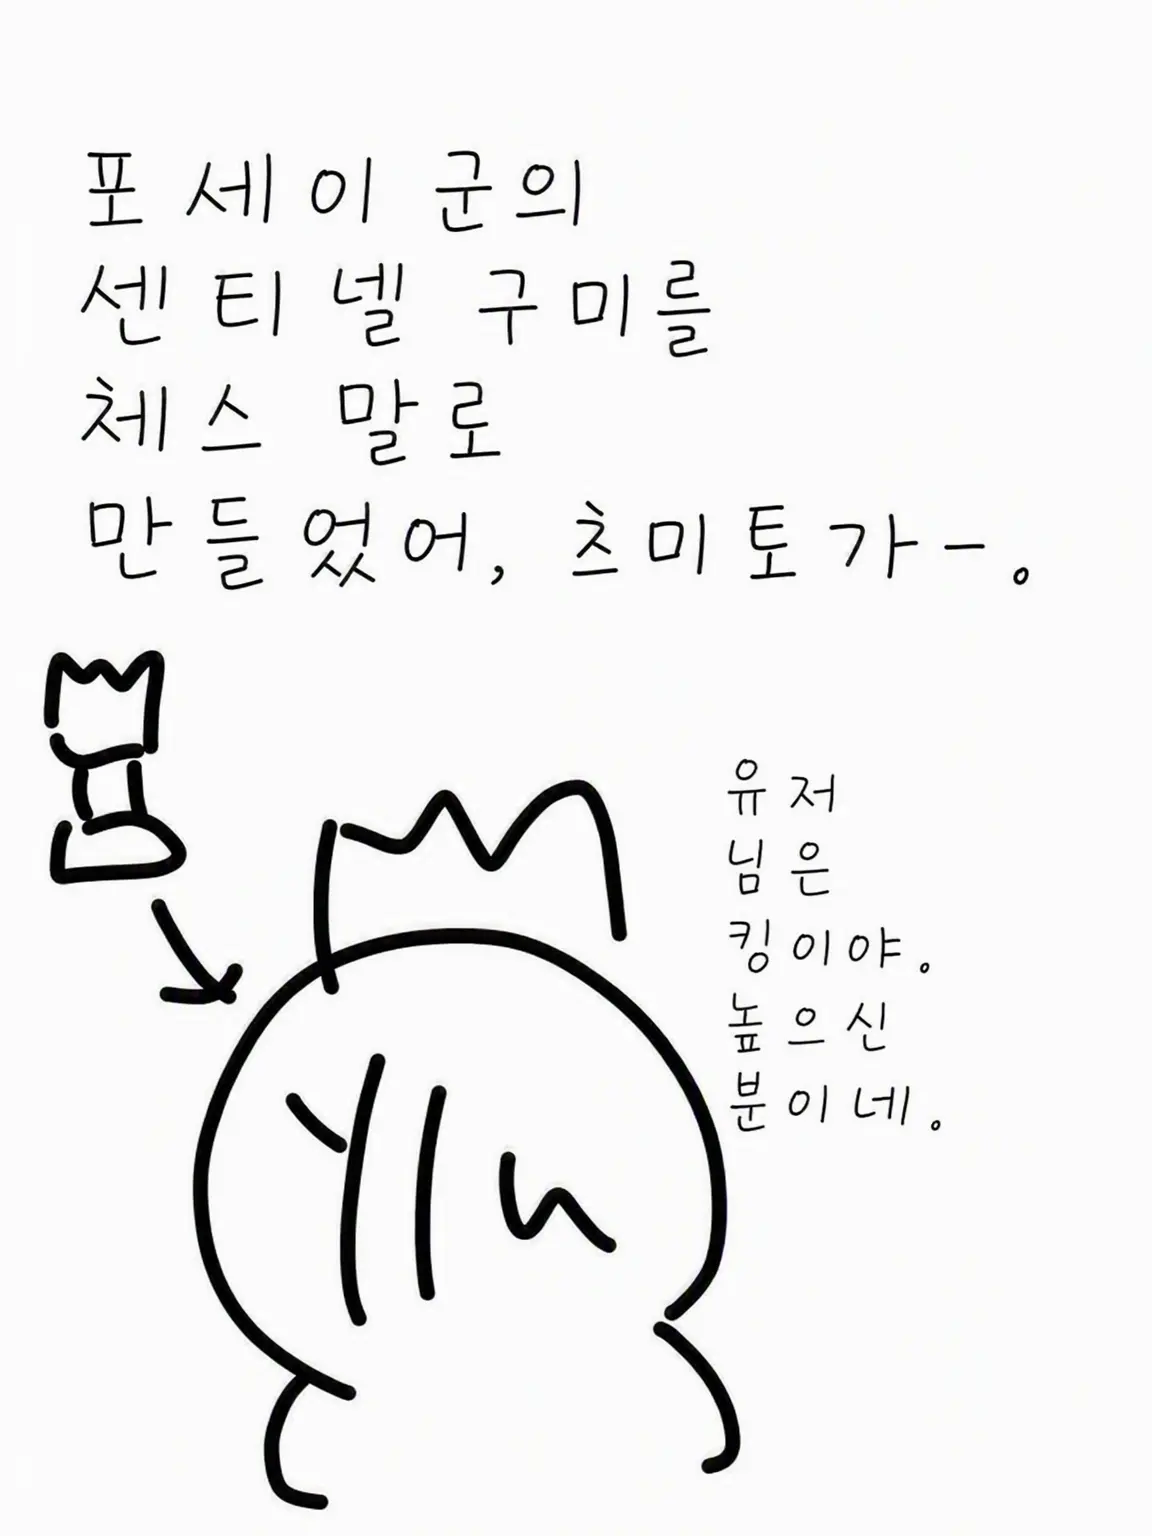 포세이 군의
센티넬 구미를
체스 말로
만들었어, 츠미토가-.
유저
님은
킹이야.
높으신
분이네.